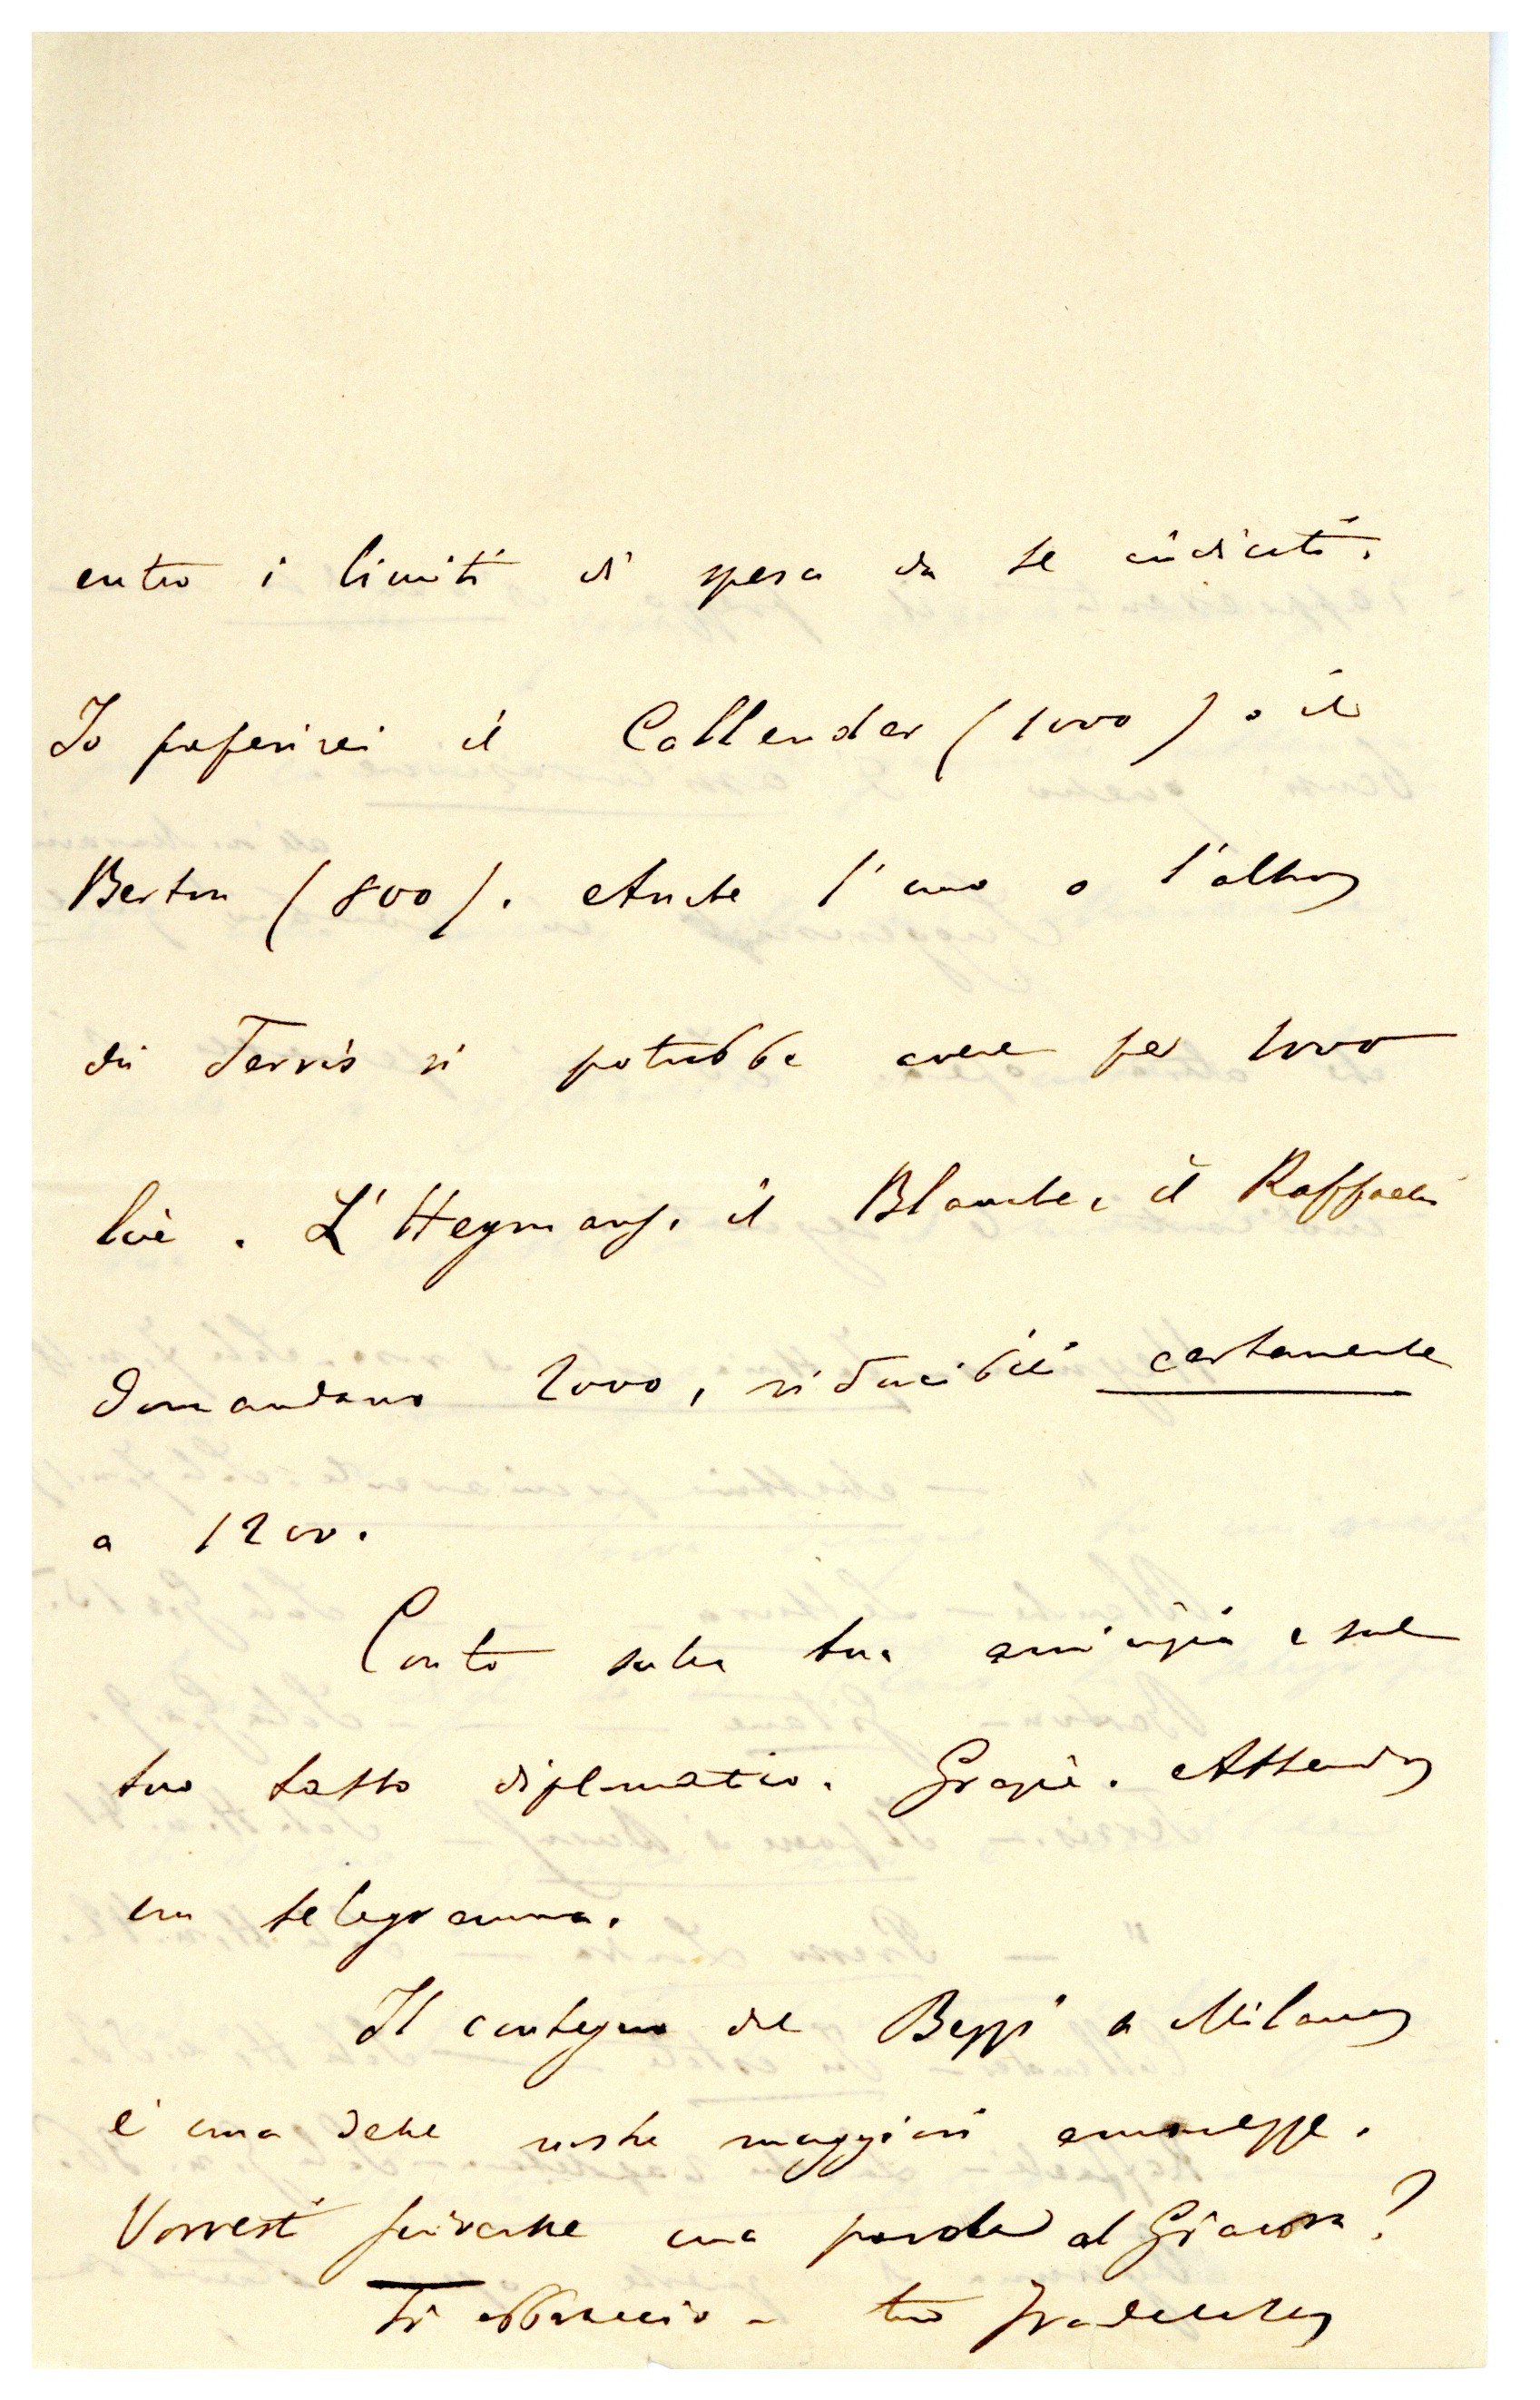 entro i limiti di spesa da te indicati.
Io preferirei il Callender (1000) o il
Berton (800). Anche l'uno o l'altro
dei Terris si potrebbe avere per 1000
lire. L'Heymans, il Blanche, il Raffaelli
domandano 2000, riducibili certamente
a 1200.
Conto sulla tua amicizia e sul
tuo tatto diplomatico. Grazie. Attendo
un telegramma.
Il contegno del Beppi a Milano
è una delle nostre maggiori amarezze.
Vorresti scriverne una parola al Giacosa?
Ti abbraccio - tuo Fradeletto